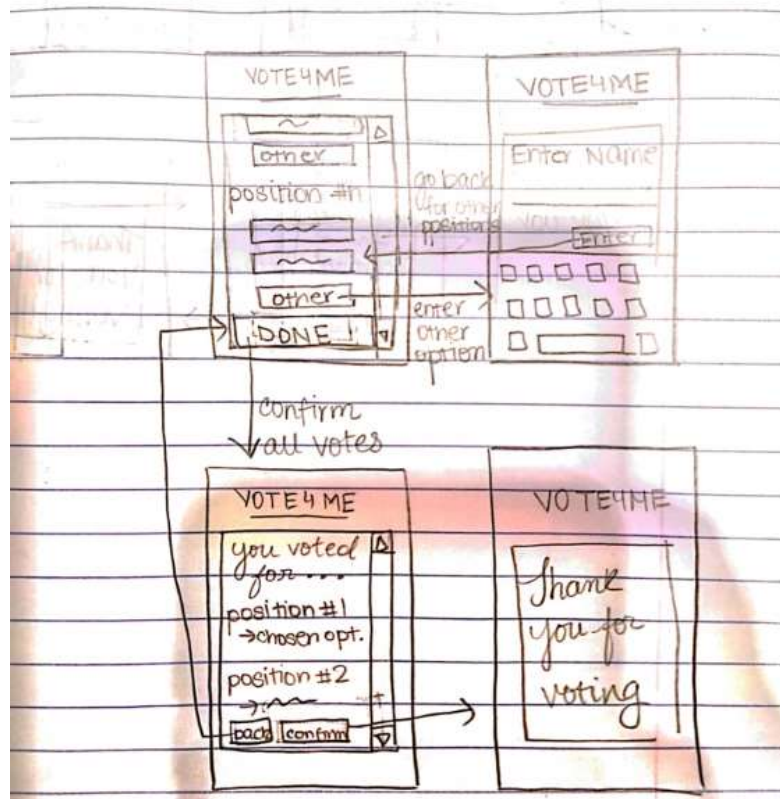 VOTE4ME
other
position #n
other
DONE
go back
for other
positions
enter
other
option
VOTE4ME
Enter Name
Enter
confirm
all votes
VOTE4ME
you voted
for ...
position #1
→chosen opt.
position #2
→
back confirm
VOTE4ME
Thank
you for
voting